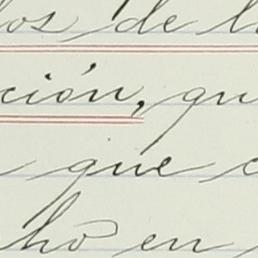 los de l
ción, qu
que c
ho en